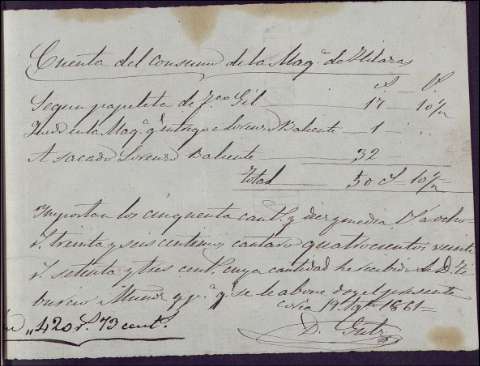 Cuenta del consumo de la Maqª de Hilaras
C. L.
Segun papeleta de Fco Gil 17 10½
en la Maqª q entrego Lorenzo Valiente 1
A sacado Lorenzo Valiente 32
Total 50 C. 10½
Importan los cinquenta cant. y diez y media á ocho
r. treinta y seis centimos cantaro quatrocientos veinte
r. setenta y tres cent. cuya cantidad he recibido de D.
Muñoz y pª q se le abone doy el presente
1861
420 r. 73 cent.
D. Gutz